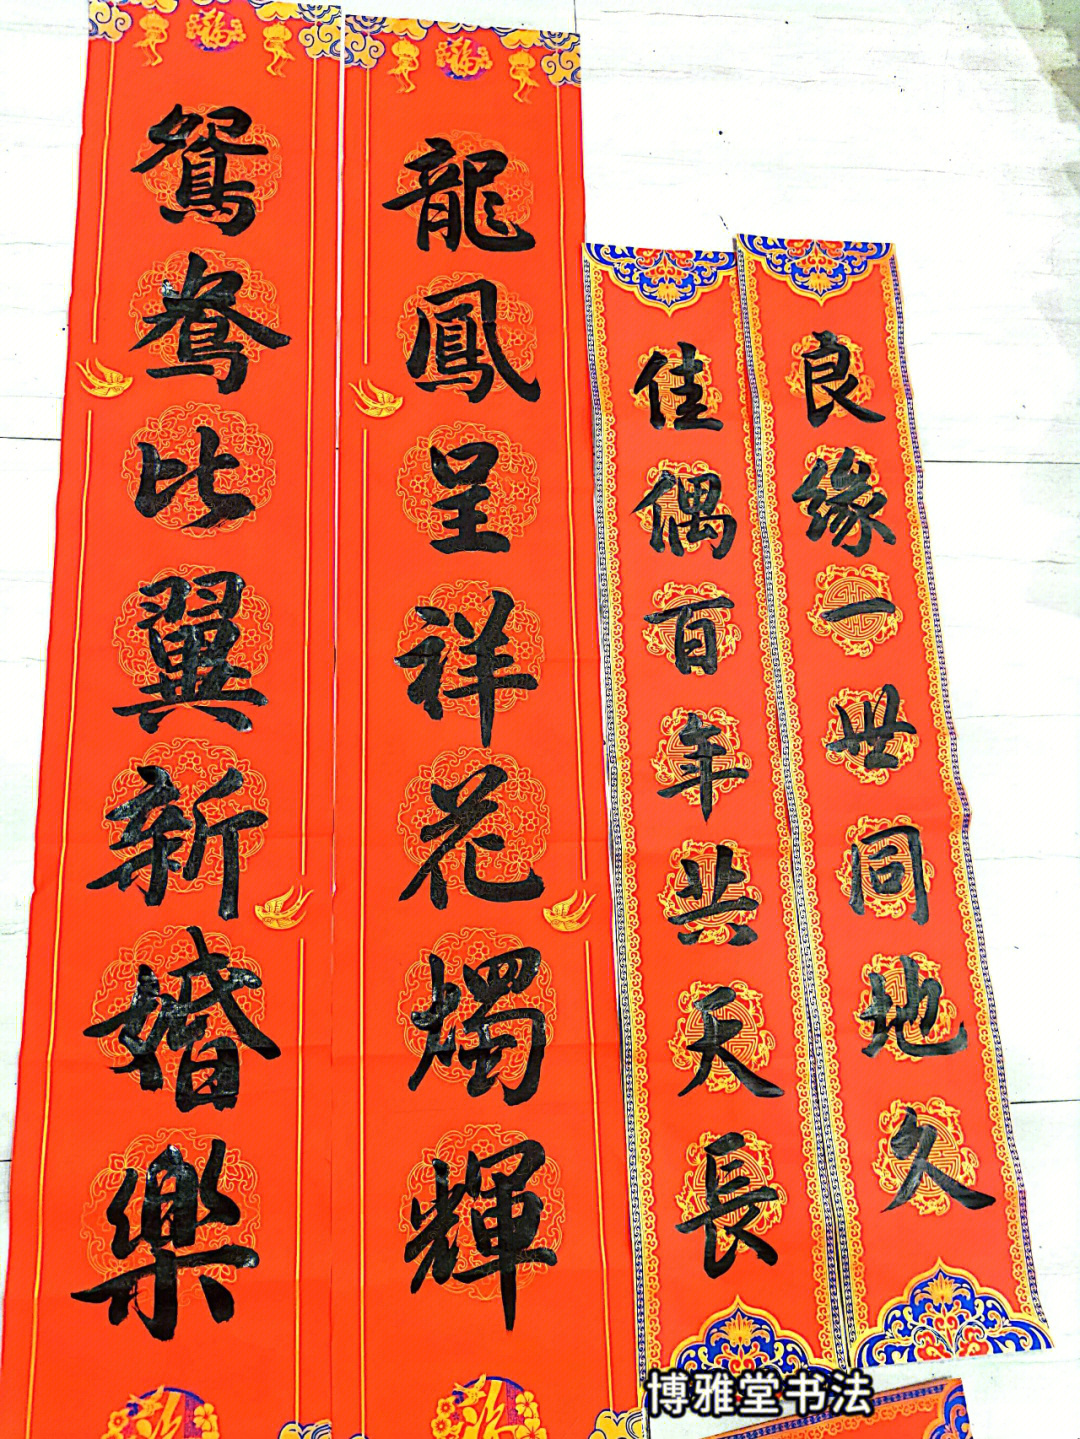 龍鳳呈祥花燭輝
鴛鴦比翼新婚樂
良缘一世同地久
佳偶百年共天長
博雅堂书法